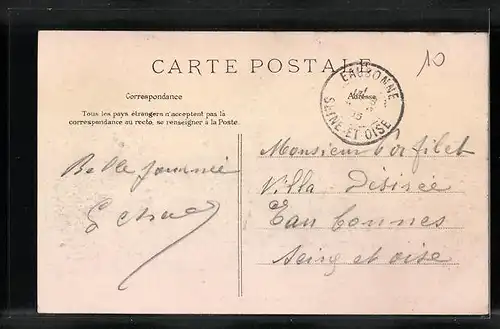 10
CARTE POSTALE
EAUBONNE
SEINE-ET-OISE
Correspondance
Adresse
Tous les pays étrangers n'acceptent pas la
correspondance au recto, se renseigner à la Poste.
Belle journée
Monsieur
Villa Désirée
Eau bonnes
Seine et oise